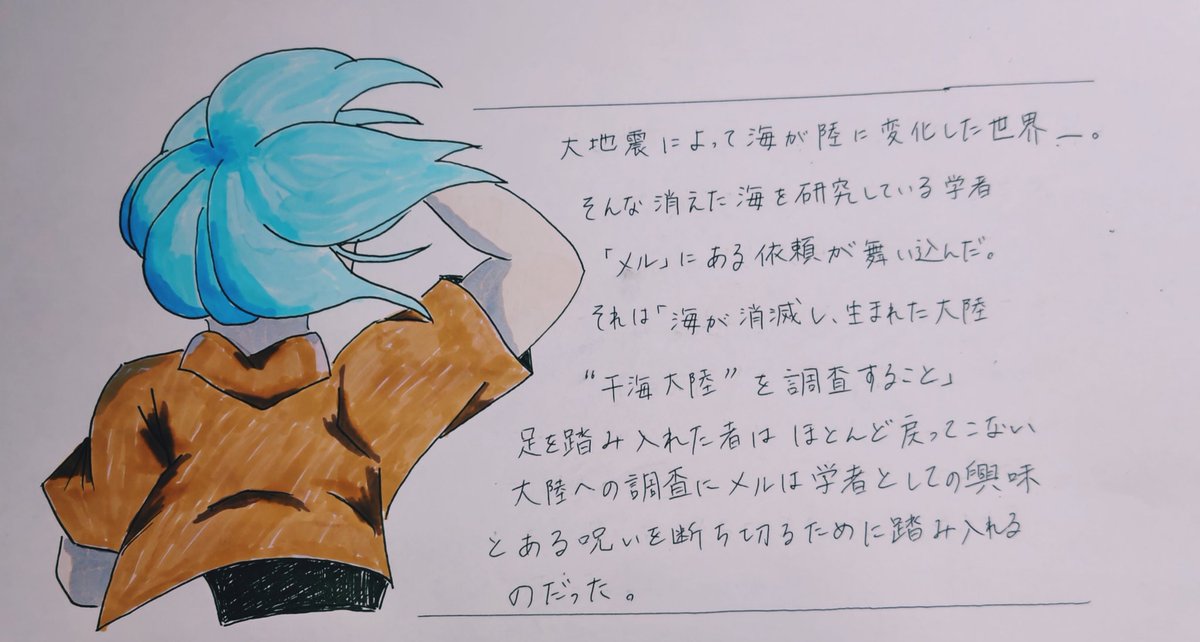 大地震によって海が陸に変化した世界―。
そんな消えた海を研究している学者
「メル」にある依頼が舞い込んだ。
それは「海が消滅し、生まれた大陸
“干海大陸”を調査すること」
足を踏み入れた者はほとんど戻ってこない
大陸への調査にメルは学者としての興味
とある呪いを断ち切るために踏み入れる
のだった。